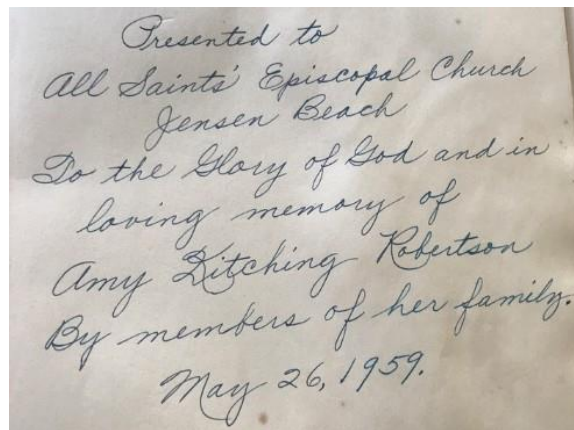 Presented to
All Saints' Episcopal Church
Jensen Beach
To the Glory of God and in
loving memory of
Amy Kitching Robertson
By members of her family.
May 26, 1959.